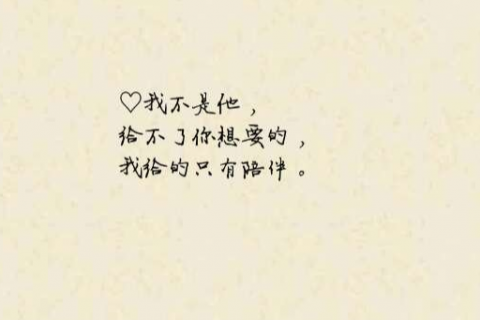 ♡我不是他，
给不了你想要的，
我给的只有陪伴。